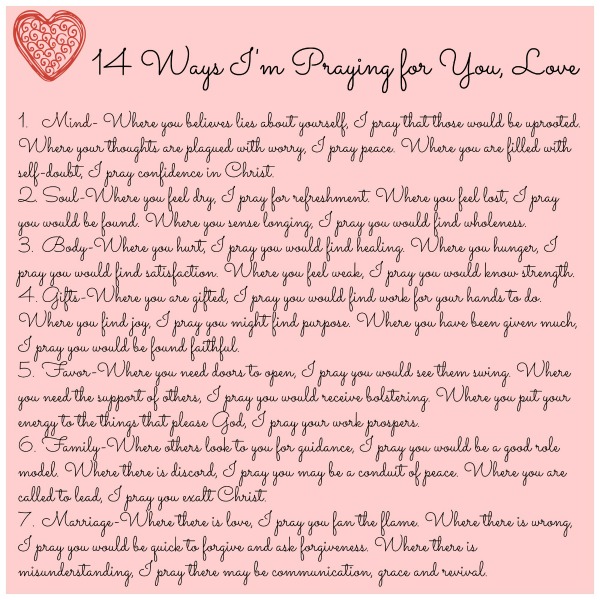 14 Ways I'm Praying for You, Love
1. Mind- Where you believes lies about yourself, I pray that those would be uprooted.
Where your thoughts are plagued with worry, I pray peace. Where you are filled with
self-doubt, I pray confidence in Christ.
2. Soul-Where you feel dry, I pray for refreshment. Where you feel lost, I pray
you would be found. Where you sense longing, I pray you would find wholeness.
3. Body-Where you hurt, I pray you would find healing. Where you hunger, I
pray you would find satisfaction. Where you feel weak, I pray you would know strength.
4. Gifts-Where you are gifted, I pray you would find work for your hands to do.
Where you find joy, I pray you might find purpose. Where you have been given much,
I pray you would be found faithful.
5. Favor-Where you need doors to open, I pray you would see them swing. Where
you need the support of others, I pray you would receive bolstering. Where you put your
energy to the things that please God, I pray your work prospers.
6. Family-Where others look to you for guidance, I pray you would be a good role
model. Where there is discord, I pray you may be a conduit of peace. Where you are
called to lead, I pray you exalt Christ.
7. Marriage-Where there is love, I pray you fan the flame. Where there is wrong,
I pray you would be quick to forgive and ask forgiveness. Where there is
misunderstanding, I pray there may be communication, grace and revival.